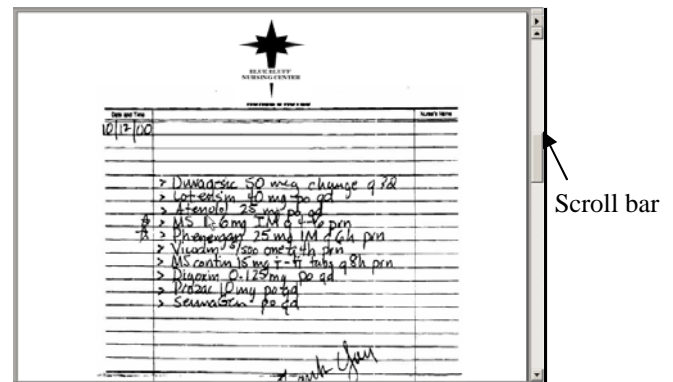 BLUE BLUFF
NURSING CENTER
Date and Time
Nurse's Name
10/12/00
> Duragesic 50 mcg change q 3d
> Lotensin 40 mg po qd
> Atenolol 25 mg po qd
> MS 6mg IM q 4-6 prn
> Phenergan 25 mg IM q 6h prn
> Vicodin 5/500 one q 4h prn
> MS contin 15 mg i-ii tabs q 8h prn
> Digoxin 0.125 mg po qd
> Prozac 10 mg po qd
> po qd
Thank You
Scroll bar